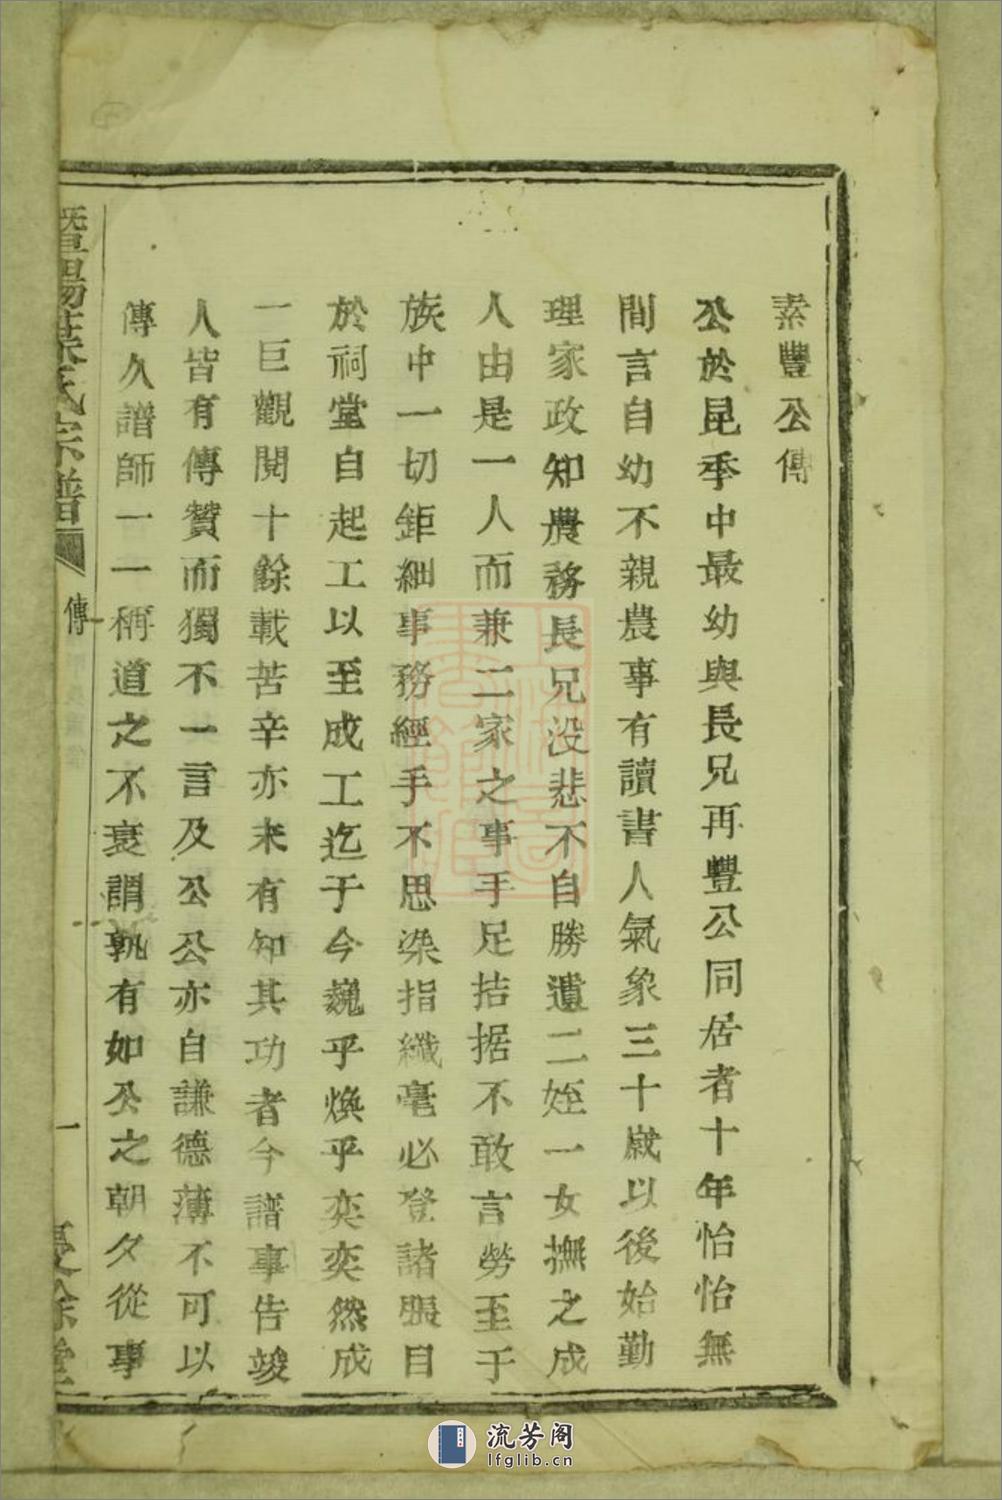 素豐公傳
公於昆季中最幼與長兄再豐公同居者十年怡怡無
間言自幼不親農事有讀書人氣象三十歲以後始勤
理家政知農務長兄没悲不自勝遺二姪一女撫之成
人由是一人而兼二家之事手足拮据不敢言勞至于
族中一切鉅細事務經手不思染指纖毫必登諸賬目
於祠堂自起工以至成工迄于今巍乎煥乎奕奕然成
一巨觀閱十餘載苦辛亦未有知其功者今譜事告竣
人皆有傳贊而獨不一言及公公亦自謙德薄不可以
傳久譜師一一稱道之不衰謂孰有如公之朝夕從事
暨陽葉氏宗譜
傳
一
餘堂
流芳阁
lfglib.cn